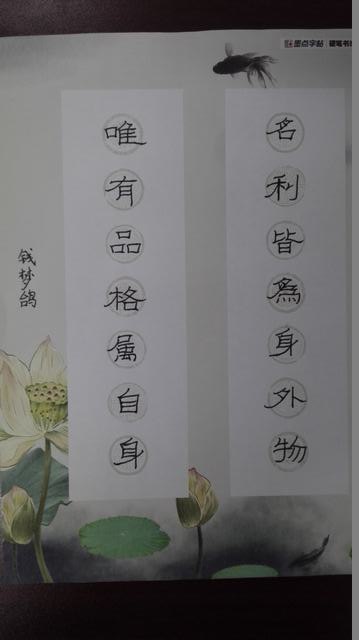 墨点字帖 硬笔书
名利皆為身外物
唯有品格属自身
钱梦鸽